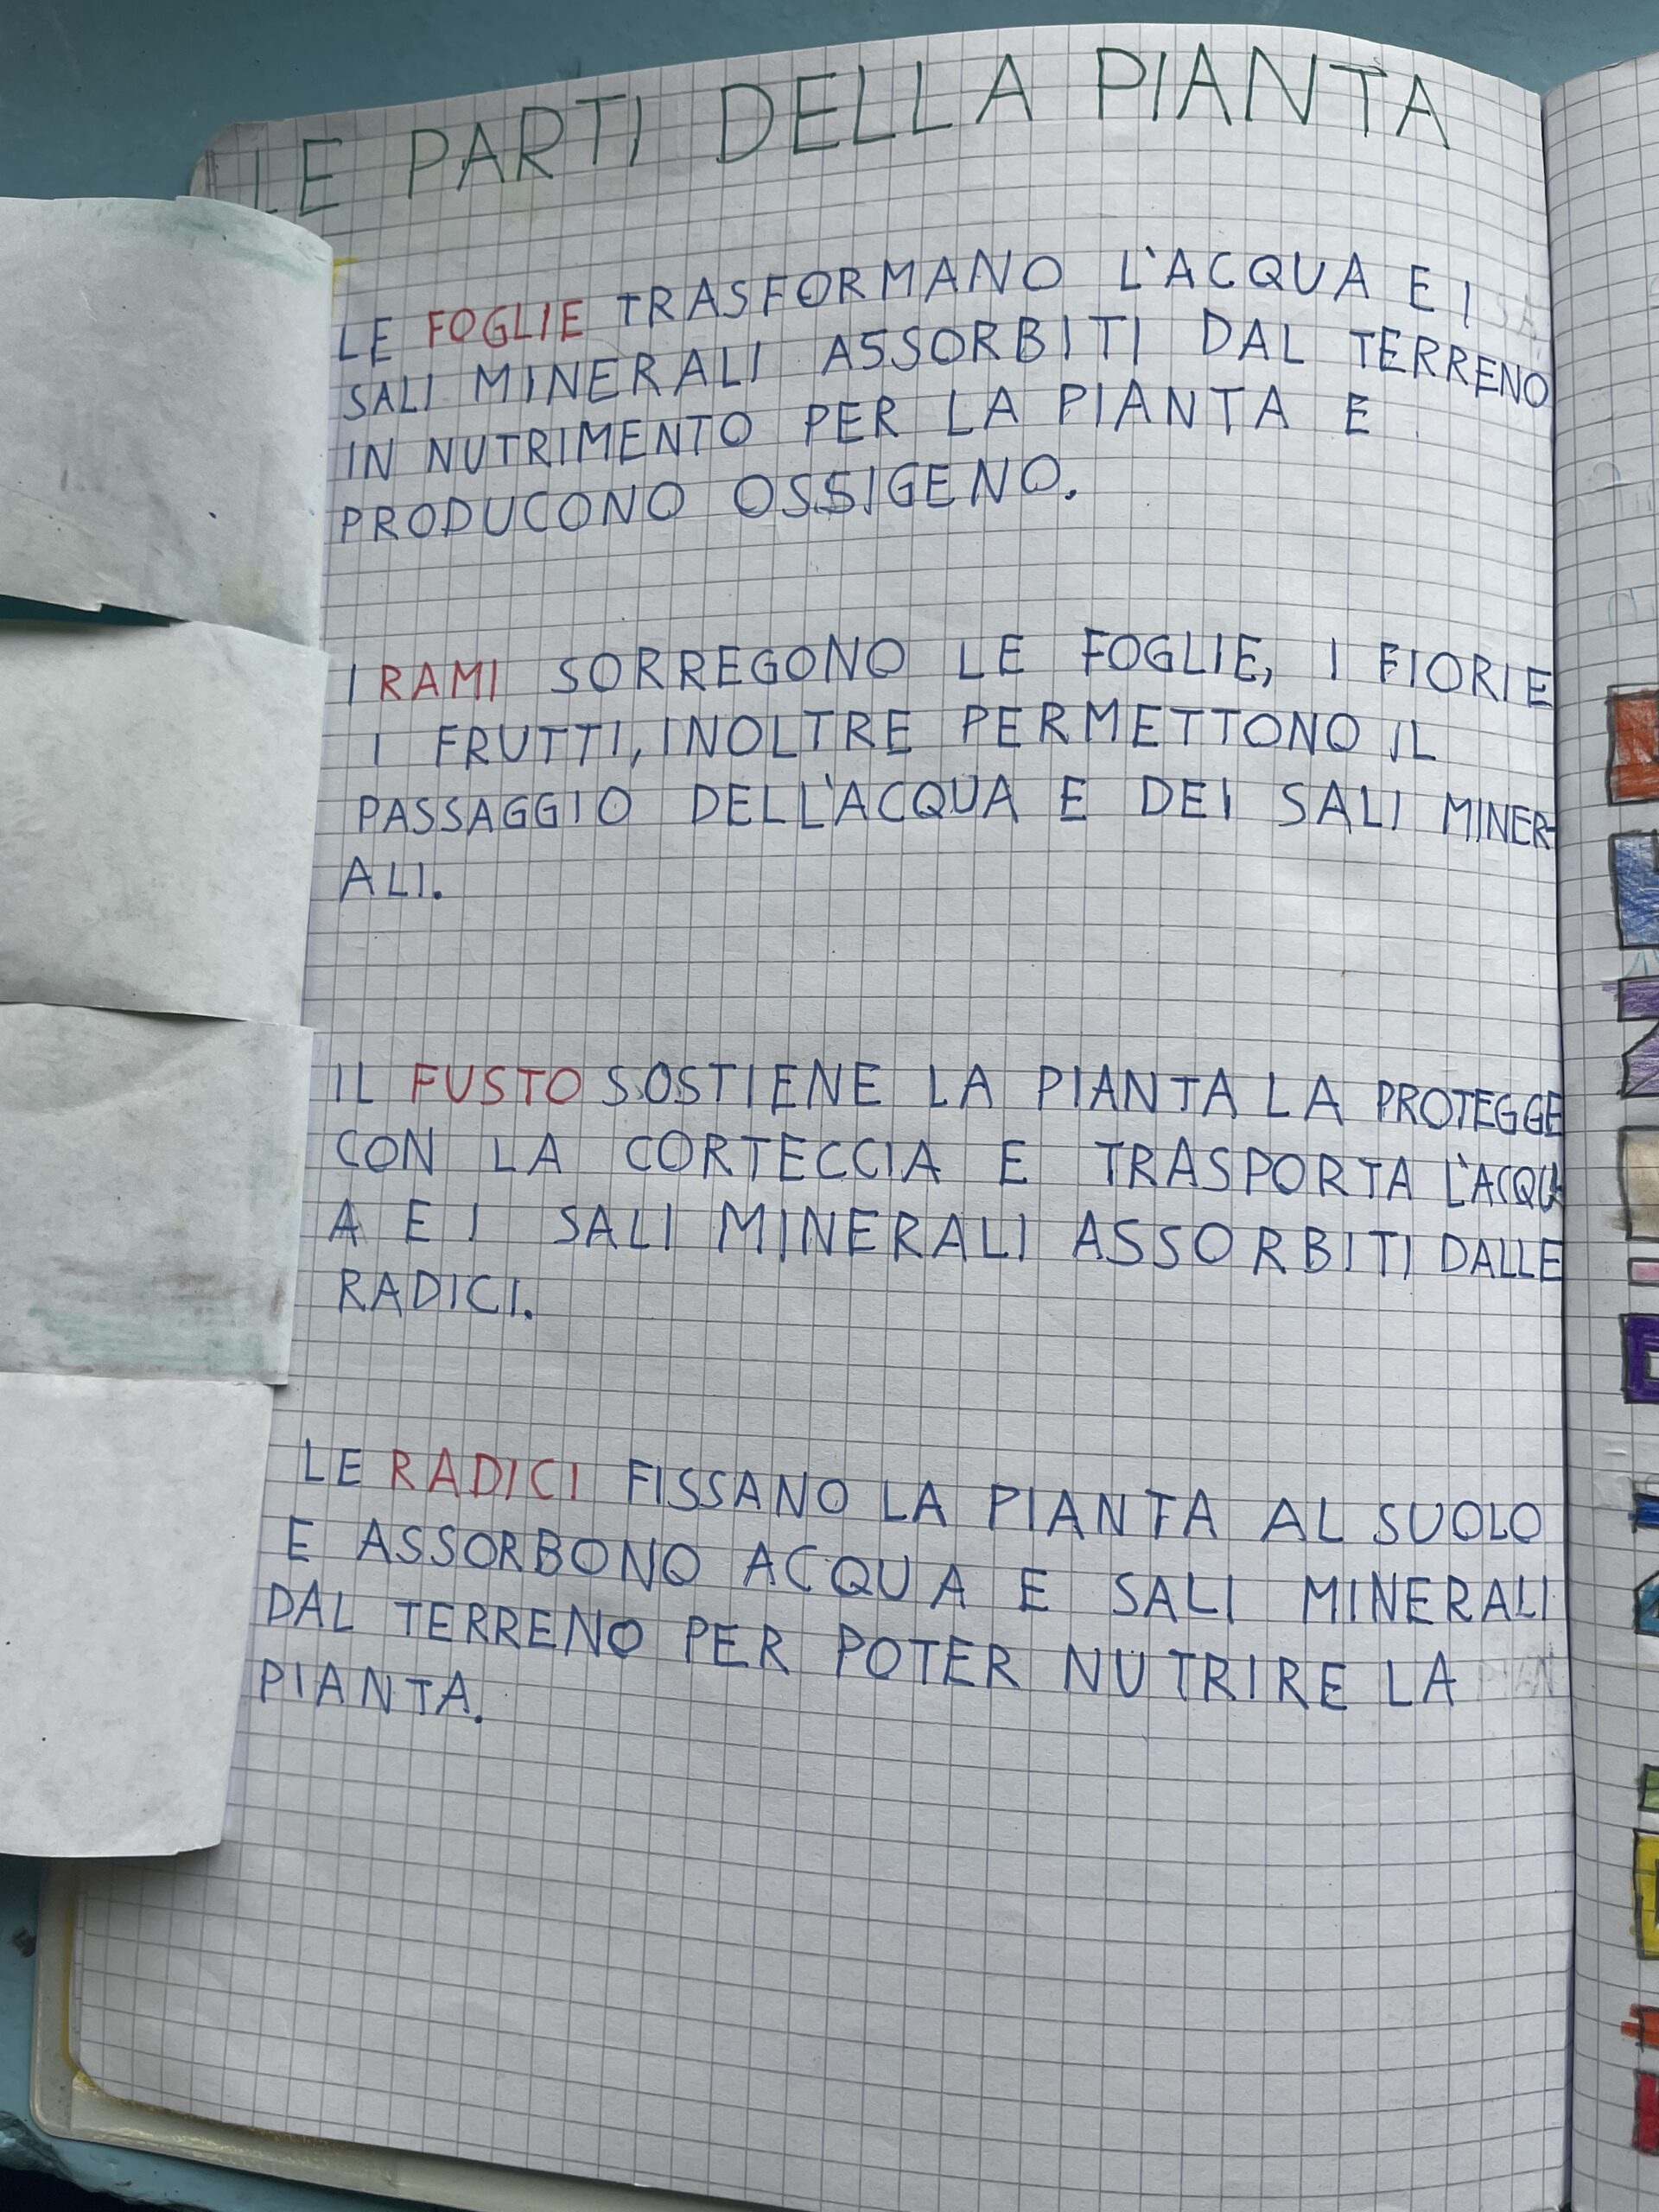 LE PARTI DELLA PIANTA
LE FOGLIE TRASFORMANO L'ACQUA E I
SALI MINERALI ASSORBITI DAL TERRENO
IN NUTRIMENTO PER LA PIANTA E
PRODUCONO OSSIGENO.
I RAMI SORREGONO LE FOGLIE, I FIORI E
I FRUTTI, INOLTRE PERMETTONO IL
PASSAGGIO DELL'ACQUA E DEI SALI MINER-
ALI.
IL FUSTO SOSTIENE LA PIANTA LA PROTEGGE
CON LA CORTECCIA E TRASPORTA L'ACQU
A E I SALI MINERALI ASSORBITI DALLE
RADICI.
LE RADICI FISSANO LA PIANTA AL SUOLO
E ASSORBONO ACQUA E SALI MINERALI
DAL TERRENO PER POTER NUTRIRE LA
PIANTA.